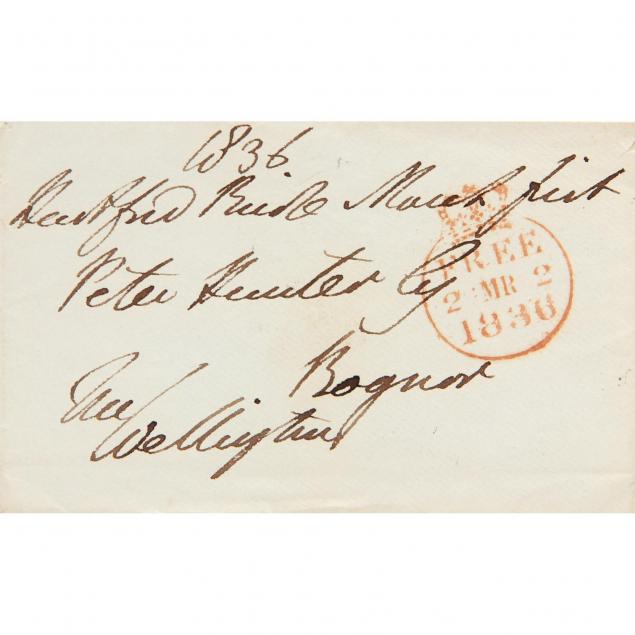 1836
Hartford Bridge March first
Peter Hunter Esq
Bognor
Wellington
FREE
2 MR 2
1836